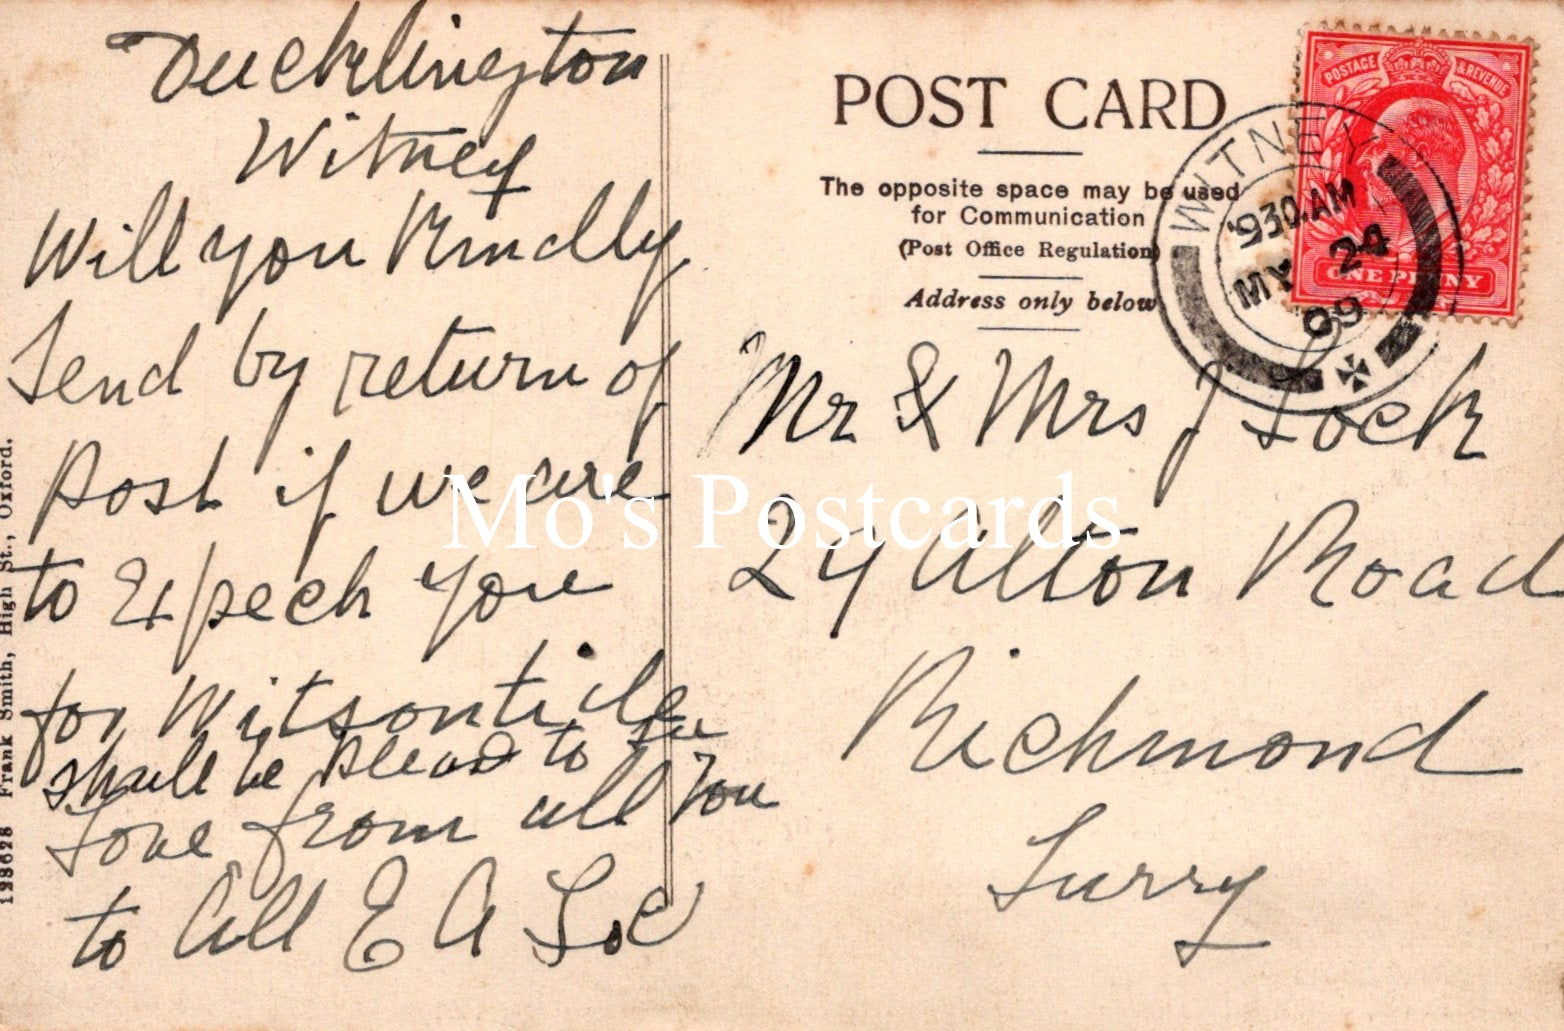 Ducklington
Witney
Will you Kindly
Send by return of
post if we are
to Expeck you
for Witsontide
shall be pleasd to see
Love from all You
to All E A Loc
POST CARD
The opposite space may be used
for Communication
(Post Office Regulation)
Address only below
Mr & Mrs J Lock
24 Alton Road
Richmond
Surry
POSTAGE & REVENUE
ONE PENNY
WITNEY
9 30 AM
MY 24
09
123628 Frank Smith, High St., Oxford.
Mo's Postcards